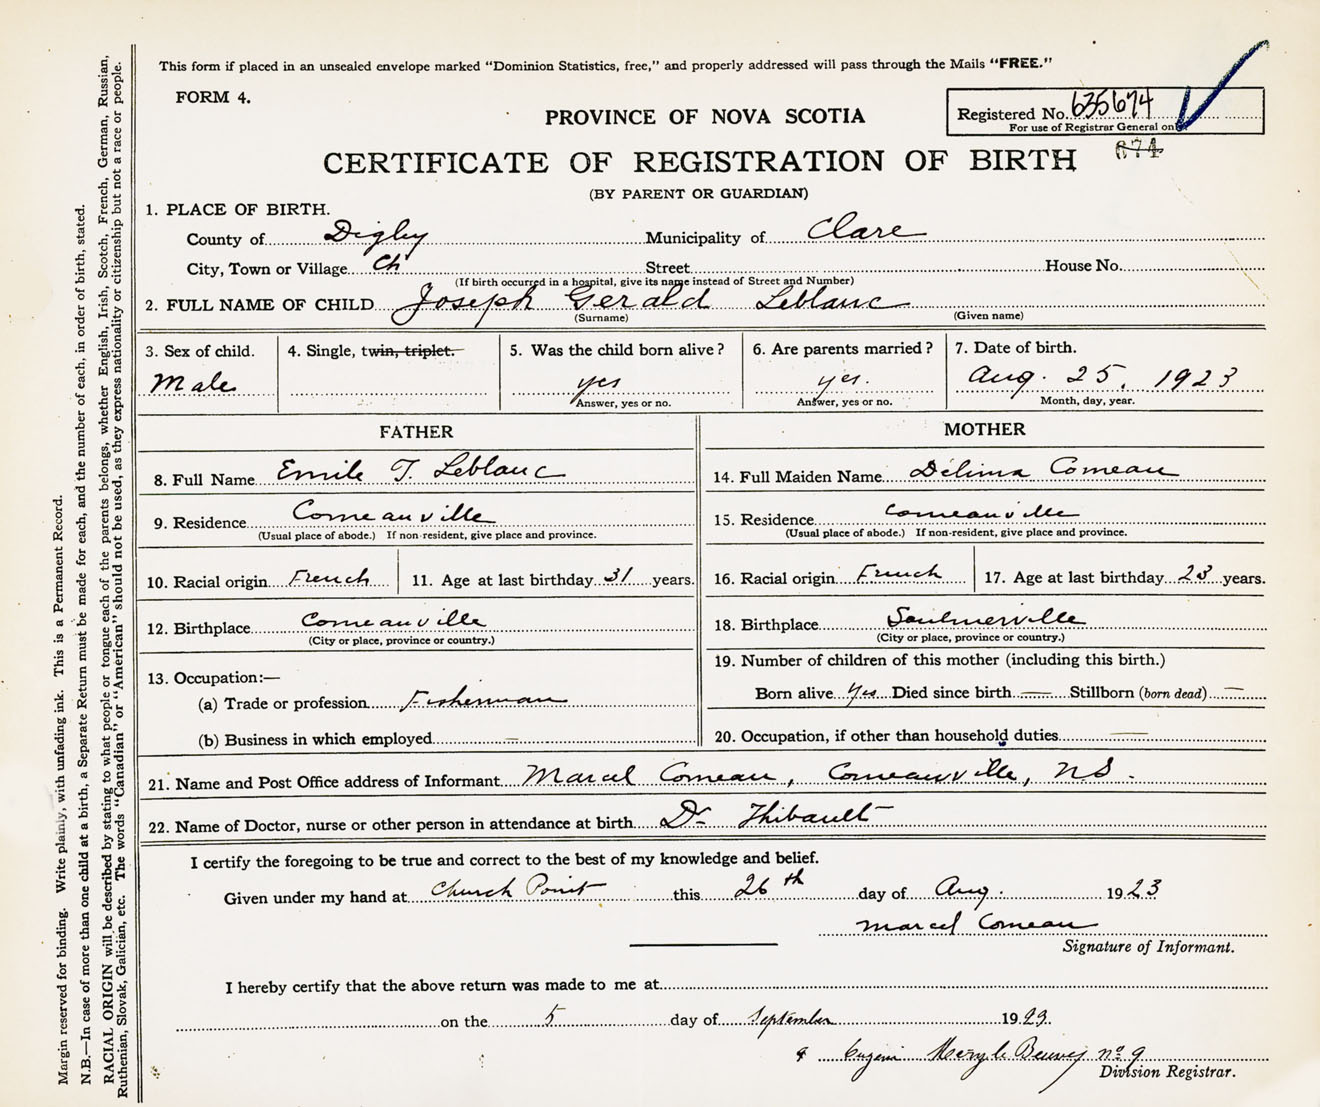 This form if placed in an unsealed envelope marked "Dominion Statistics, free," and properly addressed will pass through the Mails "FREE."
FORM 4.
Registered No. 635674
For use of Registrar General on
674
PROVINCE OF NOVA SCOTIA
CERTIFICATE OF REGISTRATION OF BIRTH
(BY PARENT OR GUARDIAN)
1. PLACE OF BIRTH.
County of Digby Municipality of Clare
City, Town or Village Ch Street House No.
(If birth occurred in a hospital, give its name instead of Street and Number)
2. FULL NAME OF CHILD Joseph Gerald Leblanc
(Surname) (Given name)
3. Sex of child. 4. Single, twin, triplet. 5. Was the child born alive? 6. Are parents married? 7. Date of birth.
Male yes yes. Aug. 25, 1923
Answer, yes or no. Answer, yes or no. Month, day, year.
FATHER
8. Full Name Emile T. Leblanc
9. Residence Comeauville
(Usual place of abode.) If non-resident, give place and province.
10. Racial origin French 11. Age at last birthday 31 years.
12. Birthplace Comeauville
(City or place, province or country.)
13. Occupation:—
(a) Trade or profession Fisherman
(b) Business in which employed —
MOTHER
14. Full Maiden Name Délima Comeau
15. Residence Comeauville
(Usual place of abode.) If non-resident, give place and province.
16. Racial origin French 17. Age at last birthday 23 years.
18. Birthplace Saulnierville
(City or place, province or country.)
19. Number of children of this mother (including this birth.)
Born alive Yes Died since birth — Stillborn (born dead) —
20. Occupation, if other than household duties —
21. Name and Post Office address of Informant Marcel Comeau, Comeauville, NS.
22. Name of Doctor, nurse or other person in attendance at birth Dr Thibault
I certify the foregoing to be true and correct to the best of my knowledge and belief.
Given under my hand at Church Point this 26th day of Aug. 1923
Marcel Comeau
Signature of Informant.
I hereby certify that the above return was made to me at
on the 5 day of September 1923.
no 9
Division Registrar.
Margin reserved for binding. Write plainly, with unfading ink. This is a Permanent Record.
N.B.—In case of more than one child at a birth, a Separate Return must be made for each, and the number of each, in order of birth, stated.
RACIAL ORIGIN will be described by stating to what people or tongue each of the parents belongs, whether English, Irish, Scotch, French, German, Russian,
Ruthenian, Slovak, Galician, etc. The words "Canadian" or "American" should not be used, as they express nationality or citizenship but not a race or people.